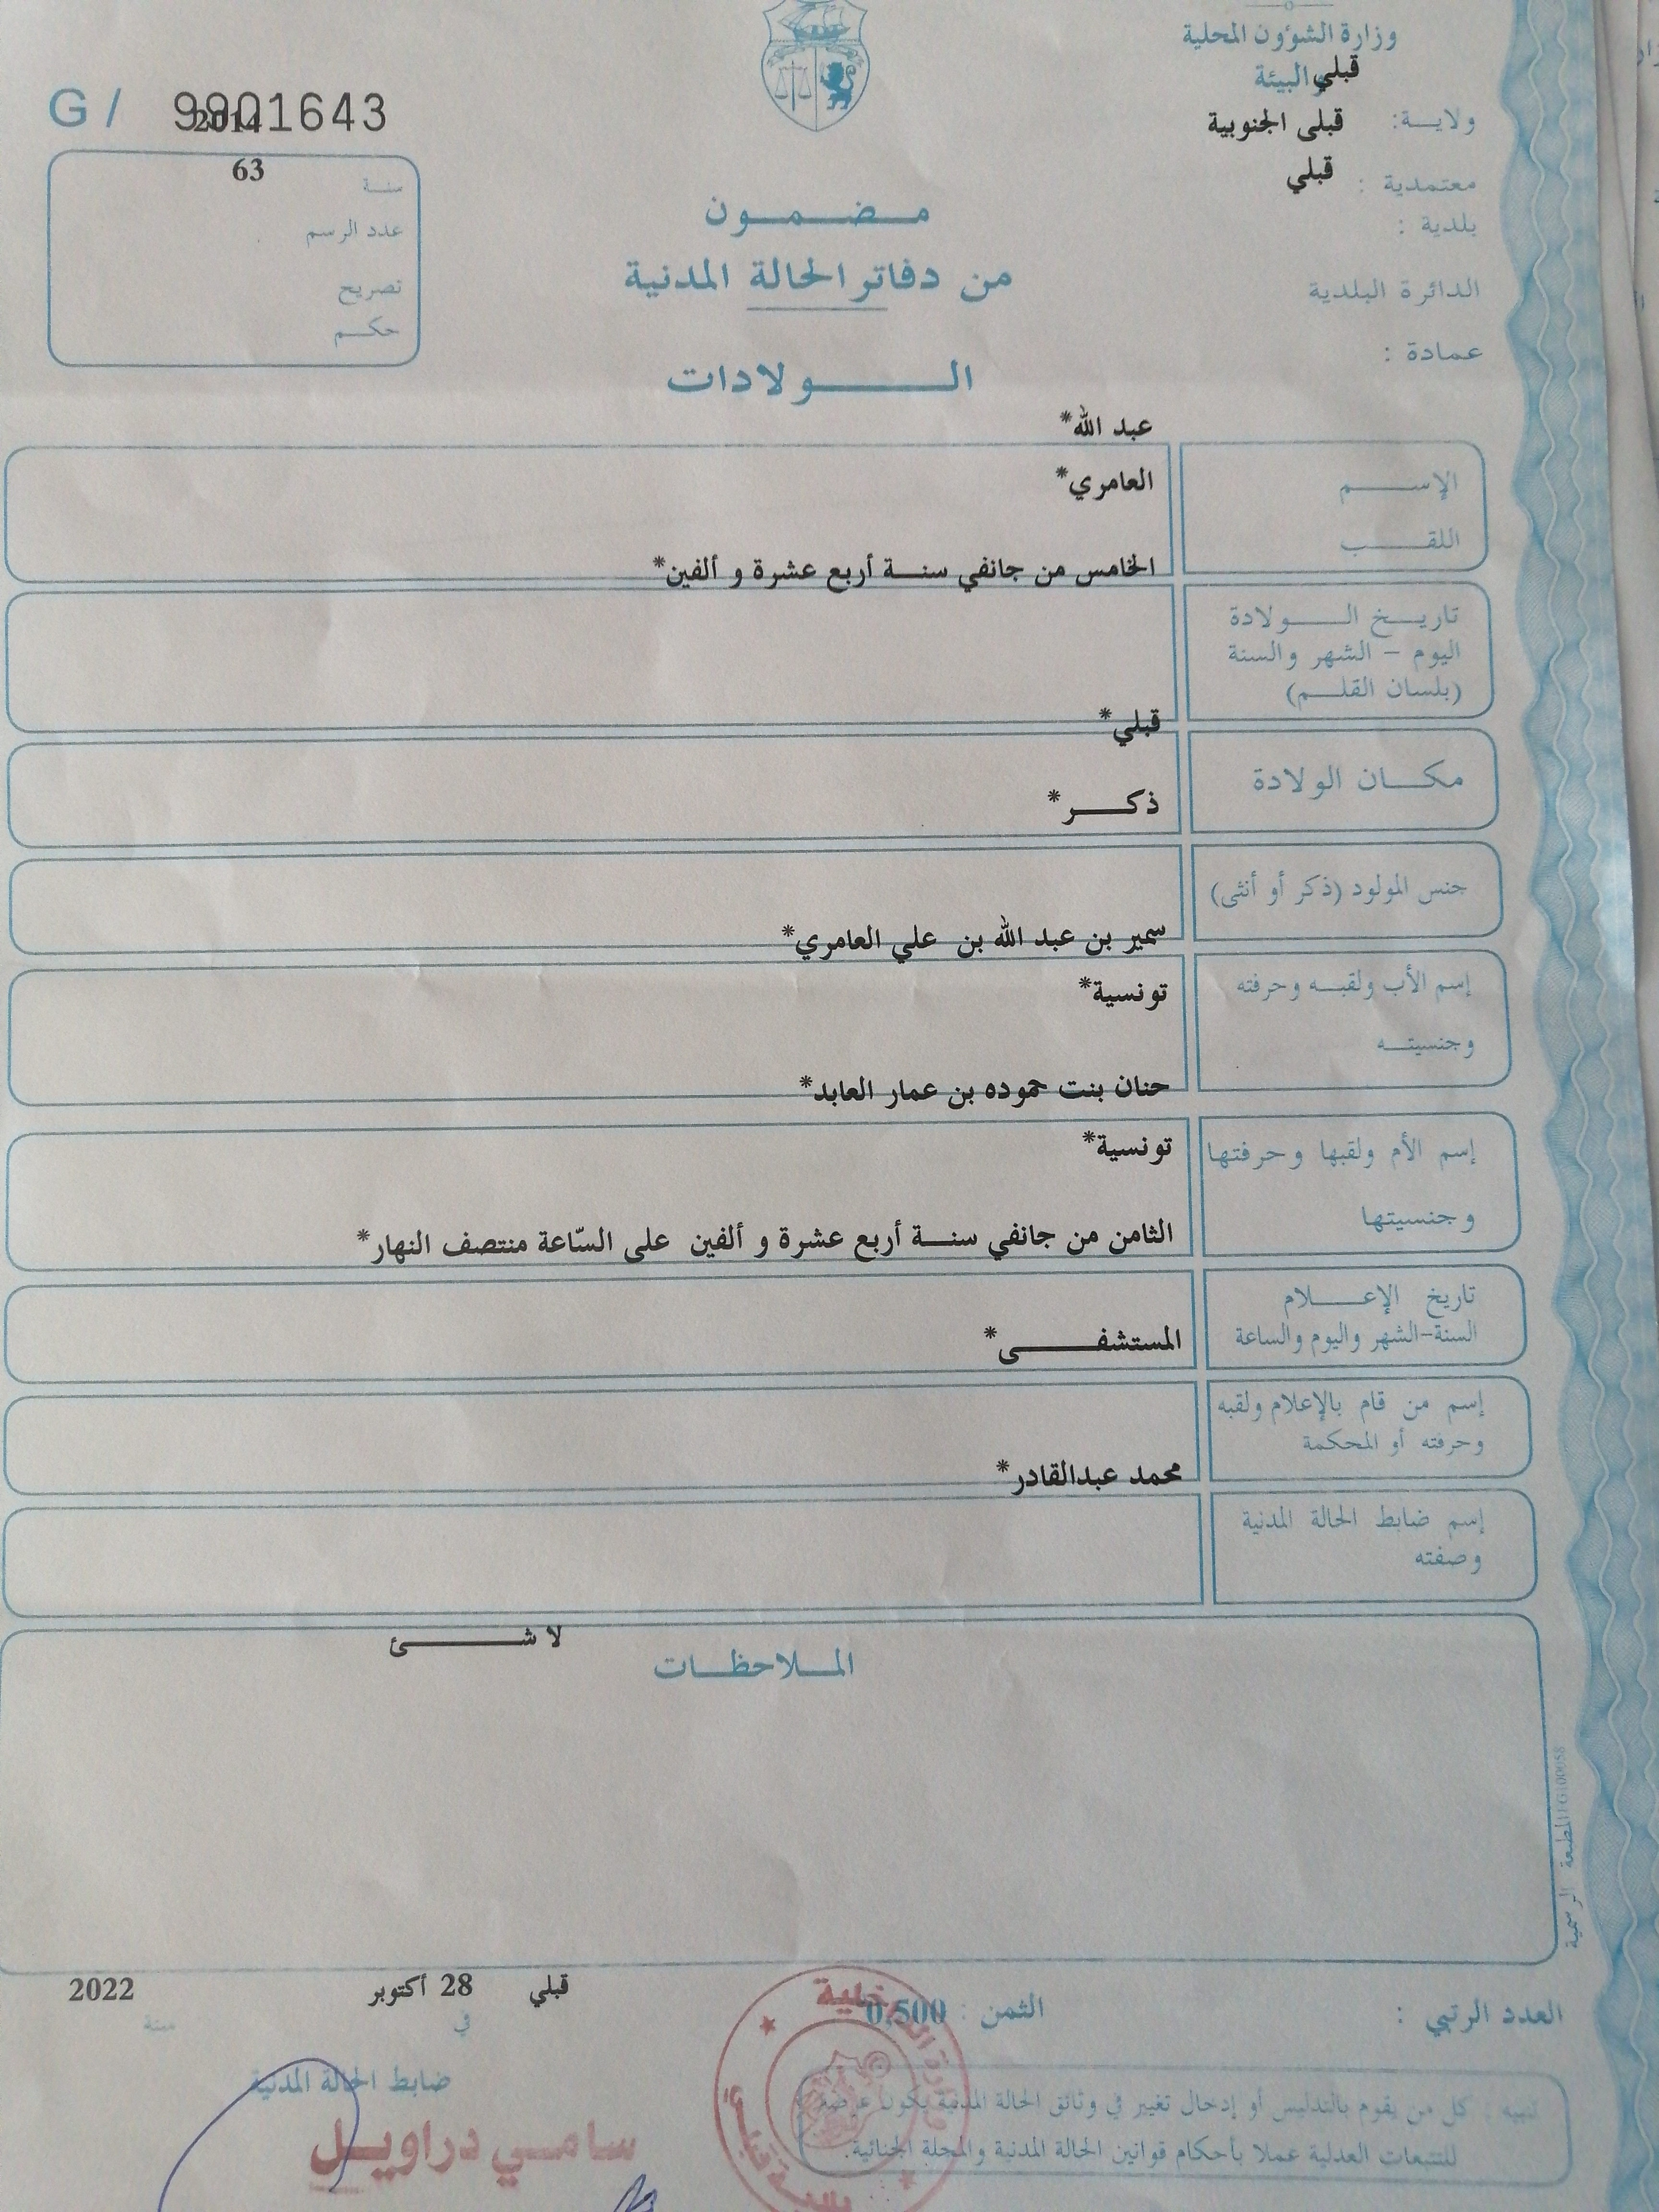 وزارة الشؤون المحلية
والبيئة
قبلي
ولاية:
قبلى الجنوبية
معتمدية :
قبلي
بلدية :
الدائرة البلدية
عمادة :
G / 9901643
2014
63
سنة
عدد الرسم
تصريح
حكم
مضمون
من دفاتر الحالة المدنية
الولادات
عبد الله*
الإسم
العامري*
اللقب
الخامس من جانفي سنة أربع عشرة و ألفين*
تاريخ الولادة
اليوم - الشهر والسنة
(بلسان القلم)
قبلي*
مكان الولادة
ذكر*
جنس المولود (ذكر أو أنثى)
سمير بن عبد الله بن علي العامري*
إسم الأب ولقبه وحرفته
تونسية*
وجنسيته
حنان بنت حموده بن عمار العابد*
إسم الأم ولقبها وحرفتها
تونسية*
وجنسيتها
الثامن من جانفي سنة أربع عشرة و ألفين على السّاعة منتصف النهار*
تاريخ الإعلام
السنة-الشهر واليوم والساعة
المستشفى*
إسم من قام بالإعلام ولقبه
وحرفته أو المحكمة
محمد عبدالقادر*
إسم ضابط الحالة المدنية
وصفته
لا شئ
الملاحظات
المطبعة الرسمية
قبلي 28 أكتوبر 2022
في سنة
العدد الرتبي :
الثمن : 0,500
ضابط الحالة المدنية
سامي دراويل
تنبيه : كل من يقوم بالتدليس أو إدخال تغيير في وثائق الحالة المدنية يكون عرضة
للتتبعات العدلية عملا بأحكام قوانين الحالة المدنية والمجلة الجنائية.